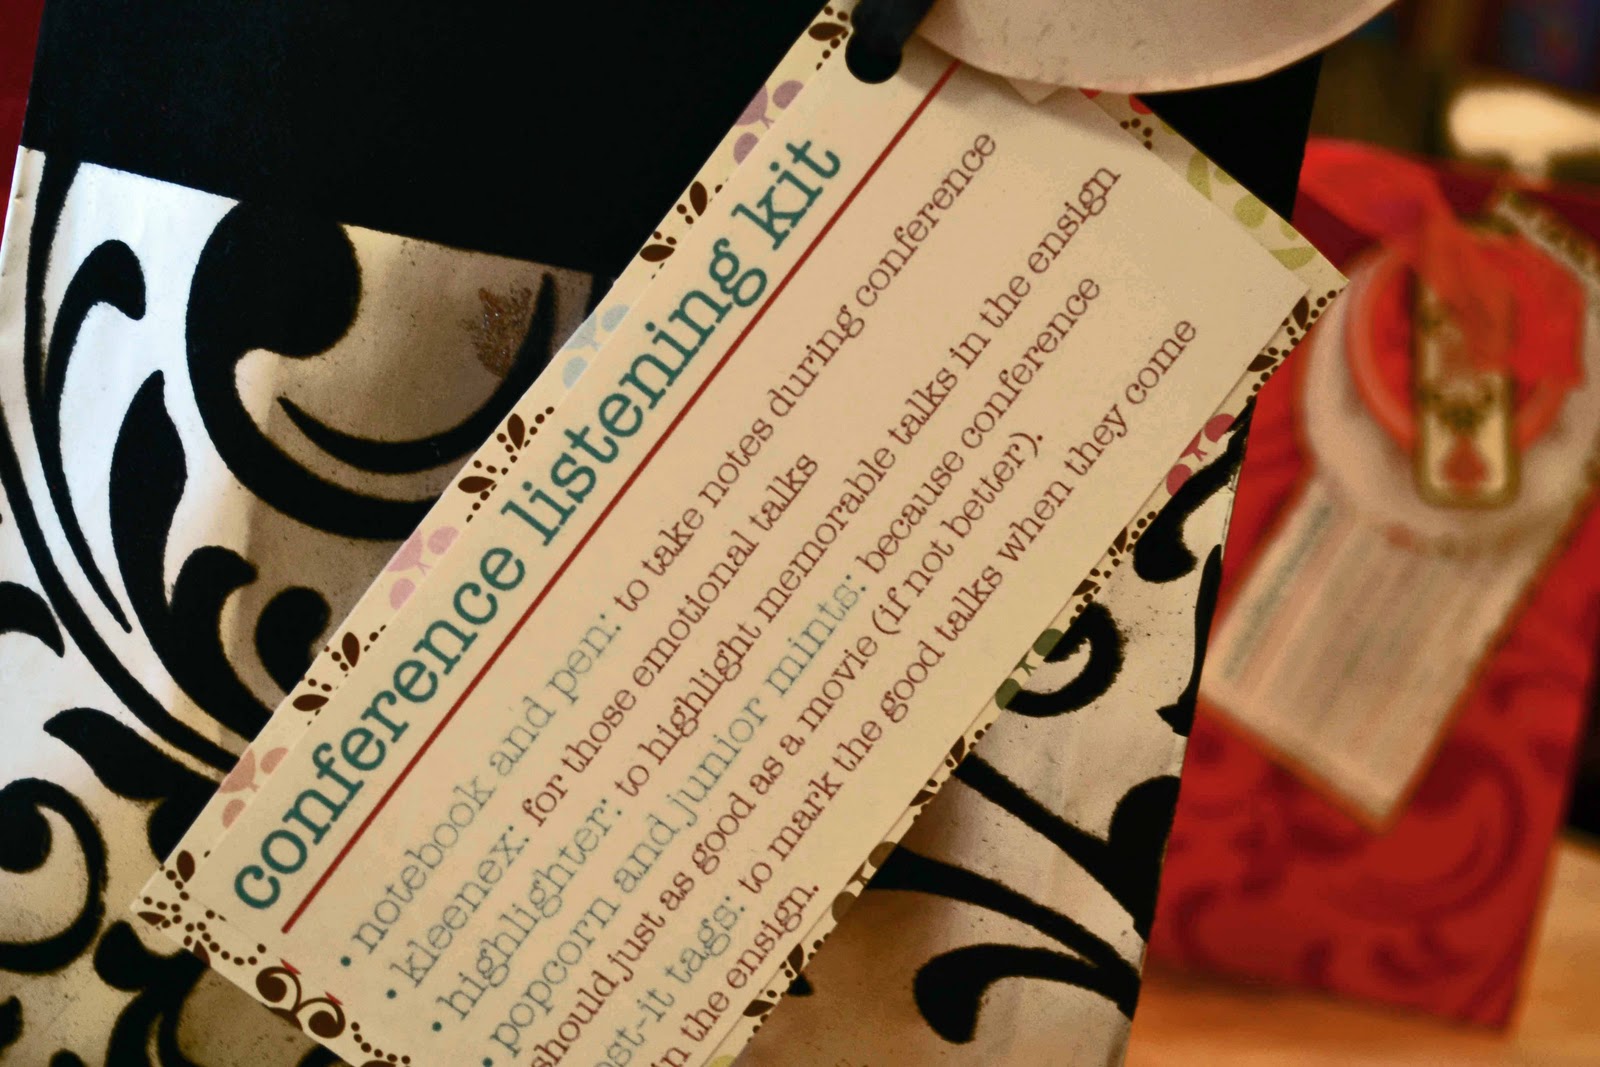 conference listening kit
• notebook and pen: to take notes during conference
• kleenex: for those emotional talks
• highlighter: to highlight memorable talks in the ensign
• popcorn and junior mints: because conference
should just as good as a movie (if not better).
st-it tags: to mark the good talks when they come
in the ensign.